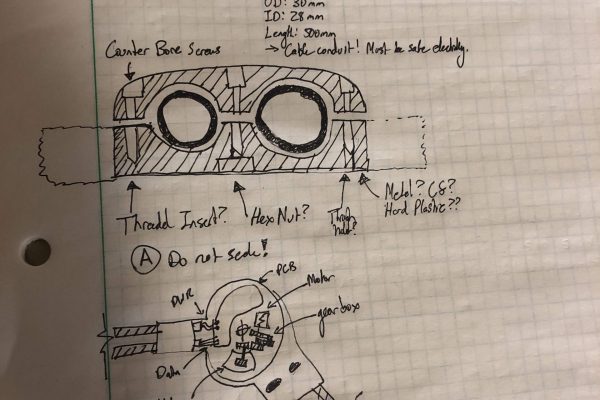 OD: 30mm
ID: 28mm
Length: 500mm
→ Cable conduit! Must be safe electrically.
Counter Bore Screws
Thread Insert?
Hex Nut?
Through
hole?
Metal? CF?
Hard Plastic??
A Do not scale!
PCB
PWR
Motor
gearbox
Data